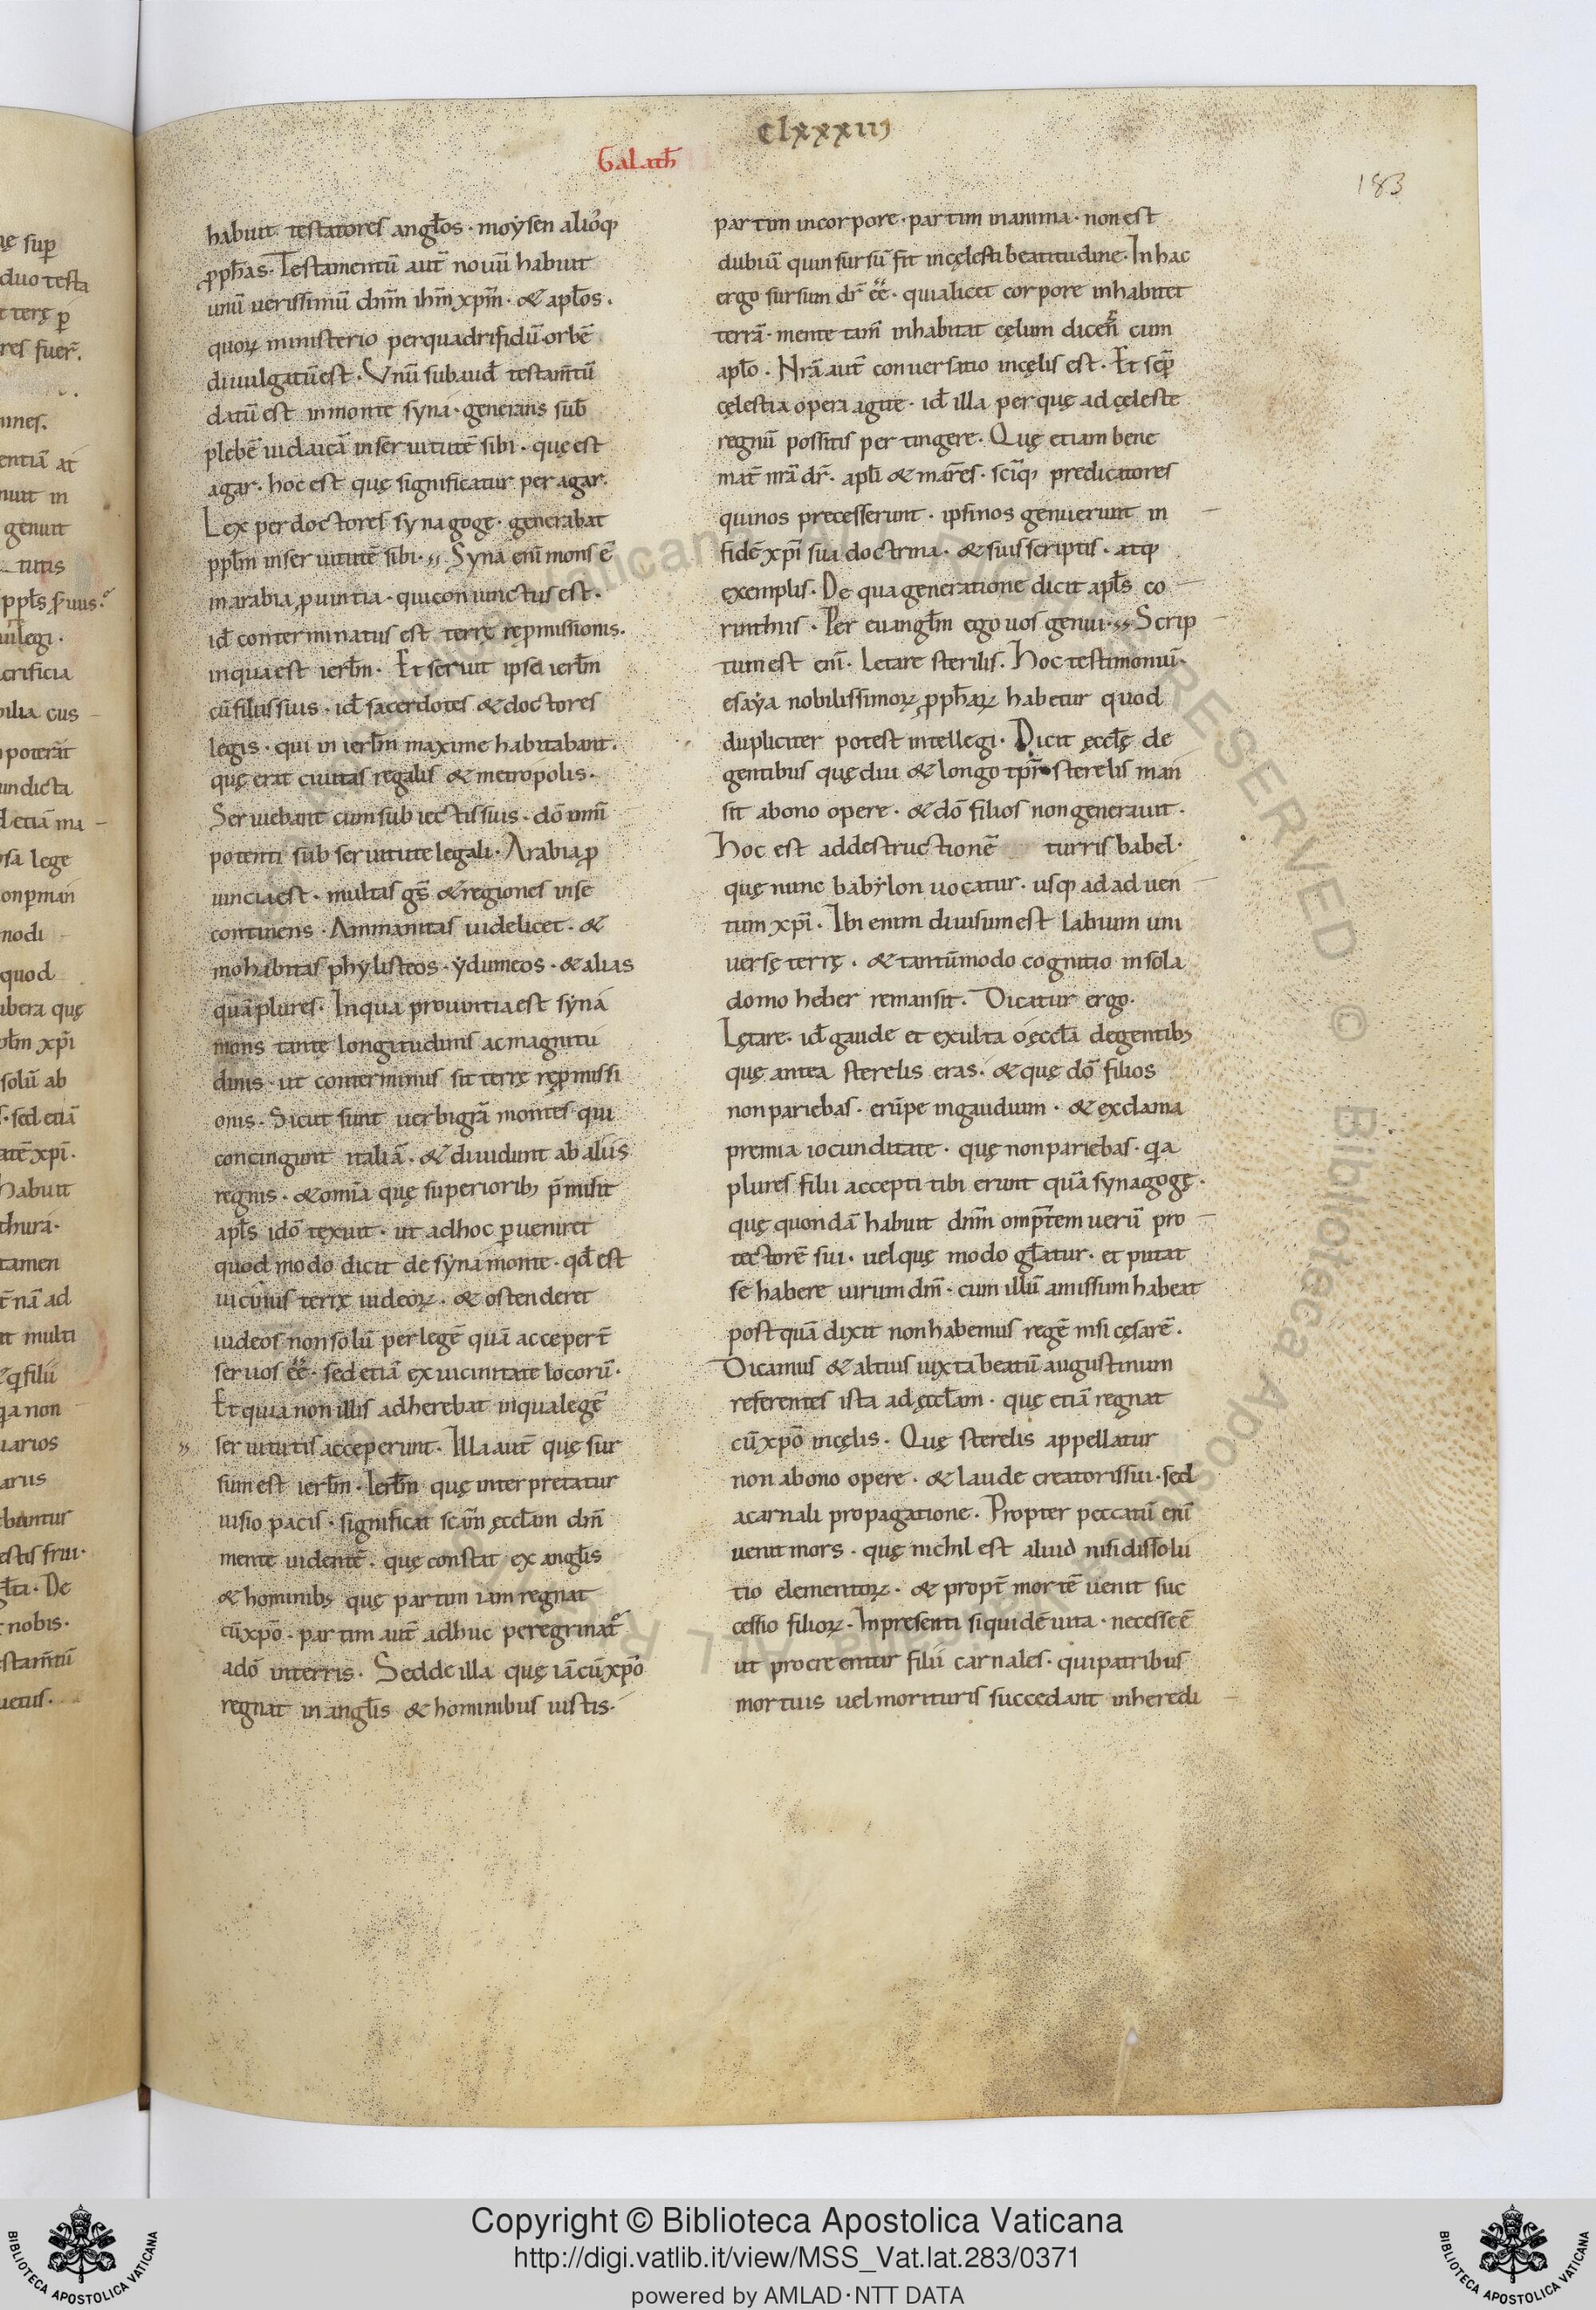 clxxxiij
Galath̄
183
habuit testatores angl̄os · moẏsen alió‌sq;
ꝓph̄as · Testamentū aut̄ nouū habuit
unū uerissimū dn̄m ih̄m xp̄m · & apl̄os ·
quoꝝ ministerio perquadrifidū orbē
diuulgatū est · Vnū subaud̄ testam̄tū
datū est inmonte syna · generans sub
plebē iudaicā inseruitutē sibi · quę est
agar · hoc est quę significatur per agar ·
Lex perdoctores synagogę · generabat
ppl̄m inseruitutē sibi · Syna enī mons ē
inarabia ꝓuintia · quiconiunctus est ·
id̄ conterminatus est terrę rep̱missionis ·
inqua est ierl̄m · Et seruit ipsa ierl̄m
cū filiis suis · id̄ sacerdotes & doctores
legis · qui in ierl̄m maxime habitabant ·
quę erat ciuitas regalis & metropolis ·
Seruiebant cum subiectis suis · dō omī
potenti sub seruitute legali · Arabia ꝓ
uincia est · multas gs̄ & regiones inse
continens · Ammanitas uidelicet · &
mohabitas phẏlisteos · ẏdumeos · & alias
quā plures · Inqua prouintia est sẏna
mons tantę longitudinis ac magnitu
dinis · ut conterminus sit terrę reꝓmissi
onis · Sicut sunt uerbigrā montes qui
concingunt italiā · & diuidunt ab aliis
regnis · & omīa quę superiorib; p̄misit
apl̄s idō texuit · ut adhoc ꝑueniret
quod modo dicit de sẏna monte · qd̄ est
uicinus terrę iudeoꝝ · & ostenderet
iudeos nonsolū perlegē quā acceper̄t
seruos eē · sed etiā exuicinitate locorū ·
Et quia non illis adherebat inqua legē
seruitutis acceperunt · Illa aut̄ quę sur
sum est ierl̄m · Ierl̄m quę interpretatur
uisio pacis · significat scām ęccl̄am dm̄
mente uidentē · quę constat ex angl̄is
& hominib; quę partim iam regnat
cū xp̄o · partim aut̄ adhuc peregrinat᷒
adō interris · Sed de illa quę iā cū xp̄o
regnat inangl̄is & hominibus iustis ·
partim incorpore · partim inanima · non est
dubiū quin sursū sit incęlesti beatitudine · In hac
ergo sursum dr̄ eē · quia licet corpore inhabitet
terrā · mente tam̄ inhabitat cęlum dicen̄ cum
apl̄o · Nr̄a aut̄ conuersatio incęlis est · Et sęp̄
cęlestia opera agite · id̄ illa per quę ad cęleste
regnū possitis pertingere · Quę etiam bene
mat̄ nr̄a dr̄ · apl̄i & mar̄es · sc̄iq; predicatores
qui nos precesserunt · ipsi nos genuerunt in
fidē xp̄i sua doctrina · & suis scriptis · atq;
exemplis · De qua generatione dicit apl̄s co
rinthiis · Per euangl̄m ego uos genui · Scrip
tum est enī · Letare sterilis · Hoc testimoniū
esaẏa nobilissimoꝝ ꝓph̄aꝝ habetur quod
dupliciter potest intellegi · Dicit ęccl̄ę de
gentibus quę diu & longo tp̄r sterelis man
sit abono opere · & dō filios non generauit ·
Hoc est addestructionē turris babel ·
quę nunc babẏlon uocatur · usq; ad aduen
tum xp̄i · Ibi enim diuisum est labium uni
uersę terrę · & tantūmodo cognitio insola
domo heber remansit · Dicatur ergo ·
Lętare · id̄ gaude et exulta o ęccl̄a de gentib;
quę antea sterelis eras · & quę dō filios
non pariebas · erūpe ingaudium · & exclama
premia iocunditate · quę non pariebas · qia
plures filii accepti tibi erunt quā synagogę ·
quę quondā habuit dn̄m omp̄tem uerū pro
tectorē sui · uel quę modo gl̄atur · et putat
se habere uirum dm̄ · cum illū amissum habeat
postquā dixit non habemus regē nisi cęsarē ·
Dicamus & altius iuxta beatū augustinum
referentes ista ad ęccl̄am · quę etiā regnat
cū xp̄o incęlis · Quę sterelis appellatur
non abono opere · & laude creatoris sui · sed
acarnali propagatione · Propter peccatū enī
uenit mors · quę nichil est aliud nisi dissolu
tio elementoꝝ · & propt̄ mortē uenit suc
cessio filioꝝ · Inpresenti siquidē uita · necesse ē
ut procreentur filii carnales · qui patribus
mortuis uel morituris succedant inheredi
Copyright © Biblioteca Apostolica Vaticana
http://digi.vatlib.it/view/MSS_Vat.lat.283/0371
powered by AMLAD·NTT DATA